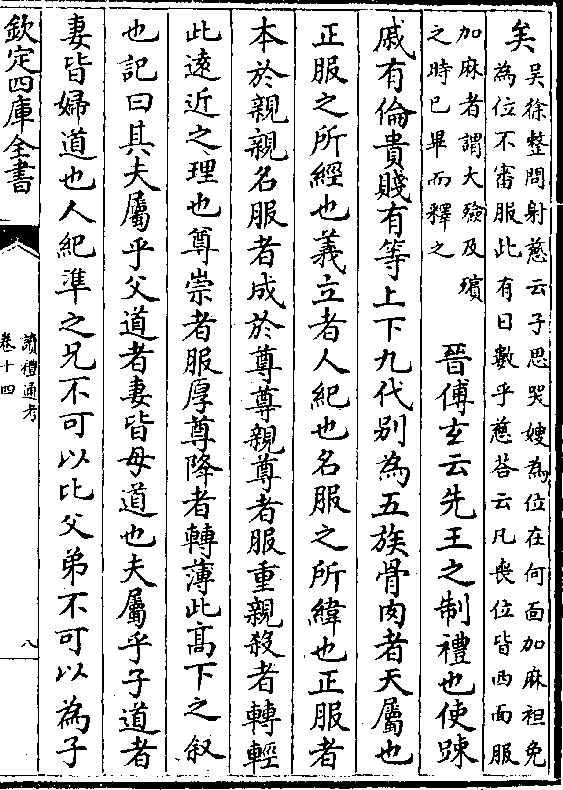 矣吳徐整問射慈云子思哭嫂為位在何面加麻袒免
為位不審服此有日數乎慈荅云凡喪位皆西面服
加麻者謂大殮及殯
之時已畢而釋之
晉傅玄云先王之制禮也使踈
戚有倫貴賤有等上下九代别為五族骨肉者天屬也
正服之所經也義立者人紀也名服之所緯也正服者
本於親親名服者成於尊尊親尊者服重親殺者轉輕
此逺近之理也尊崇者服厚尊降者轉薄此髙下之叙
也記曰其夫屬乎父道者妻皆母道也夫屬乎子道者
妻皆婦道也人紀準之兄不可以比父弟不可以為子
欽定四庫全書
讀禮通考
卷十四
八